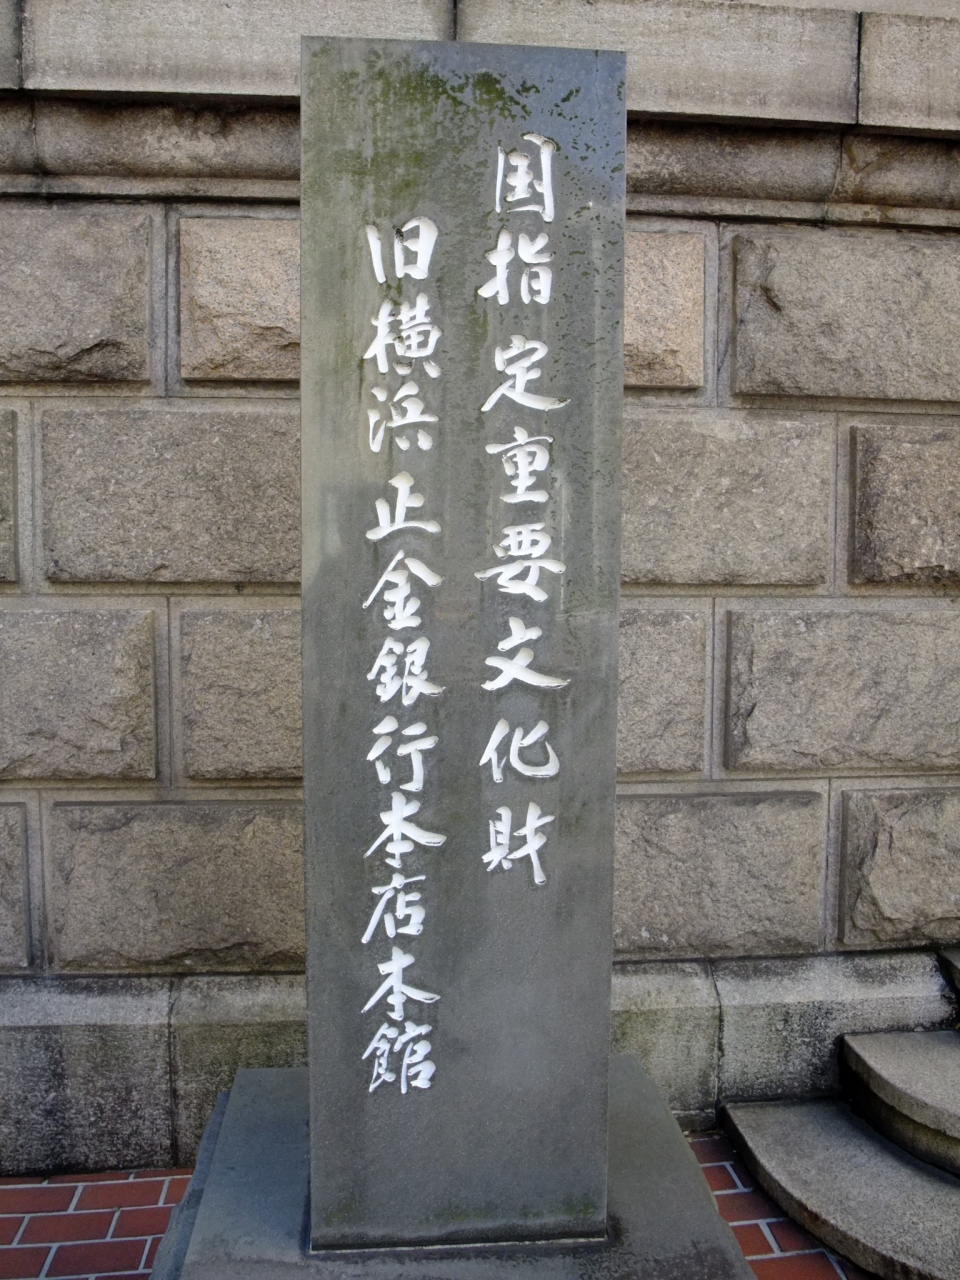 国指定重要文化財
旧横浜正金銀行本店本館